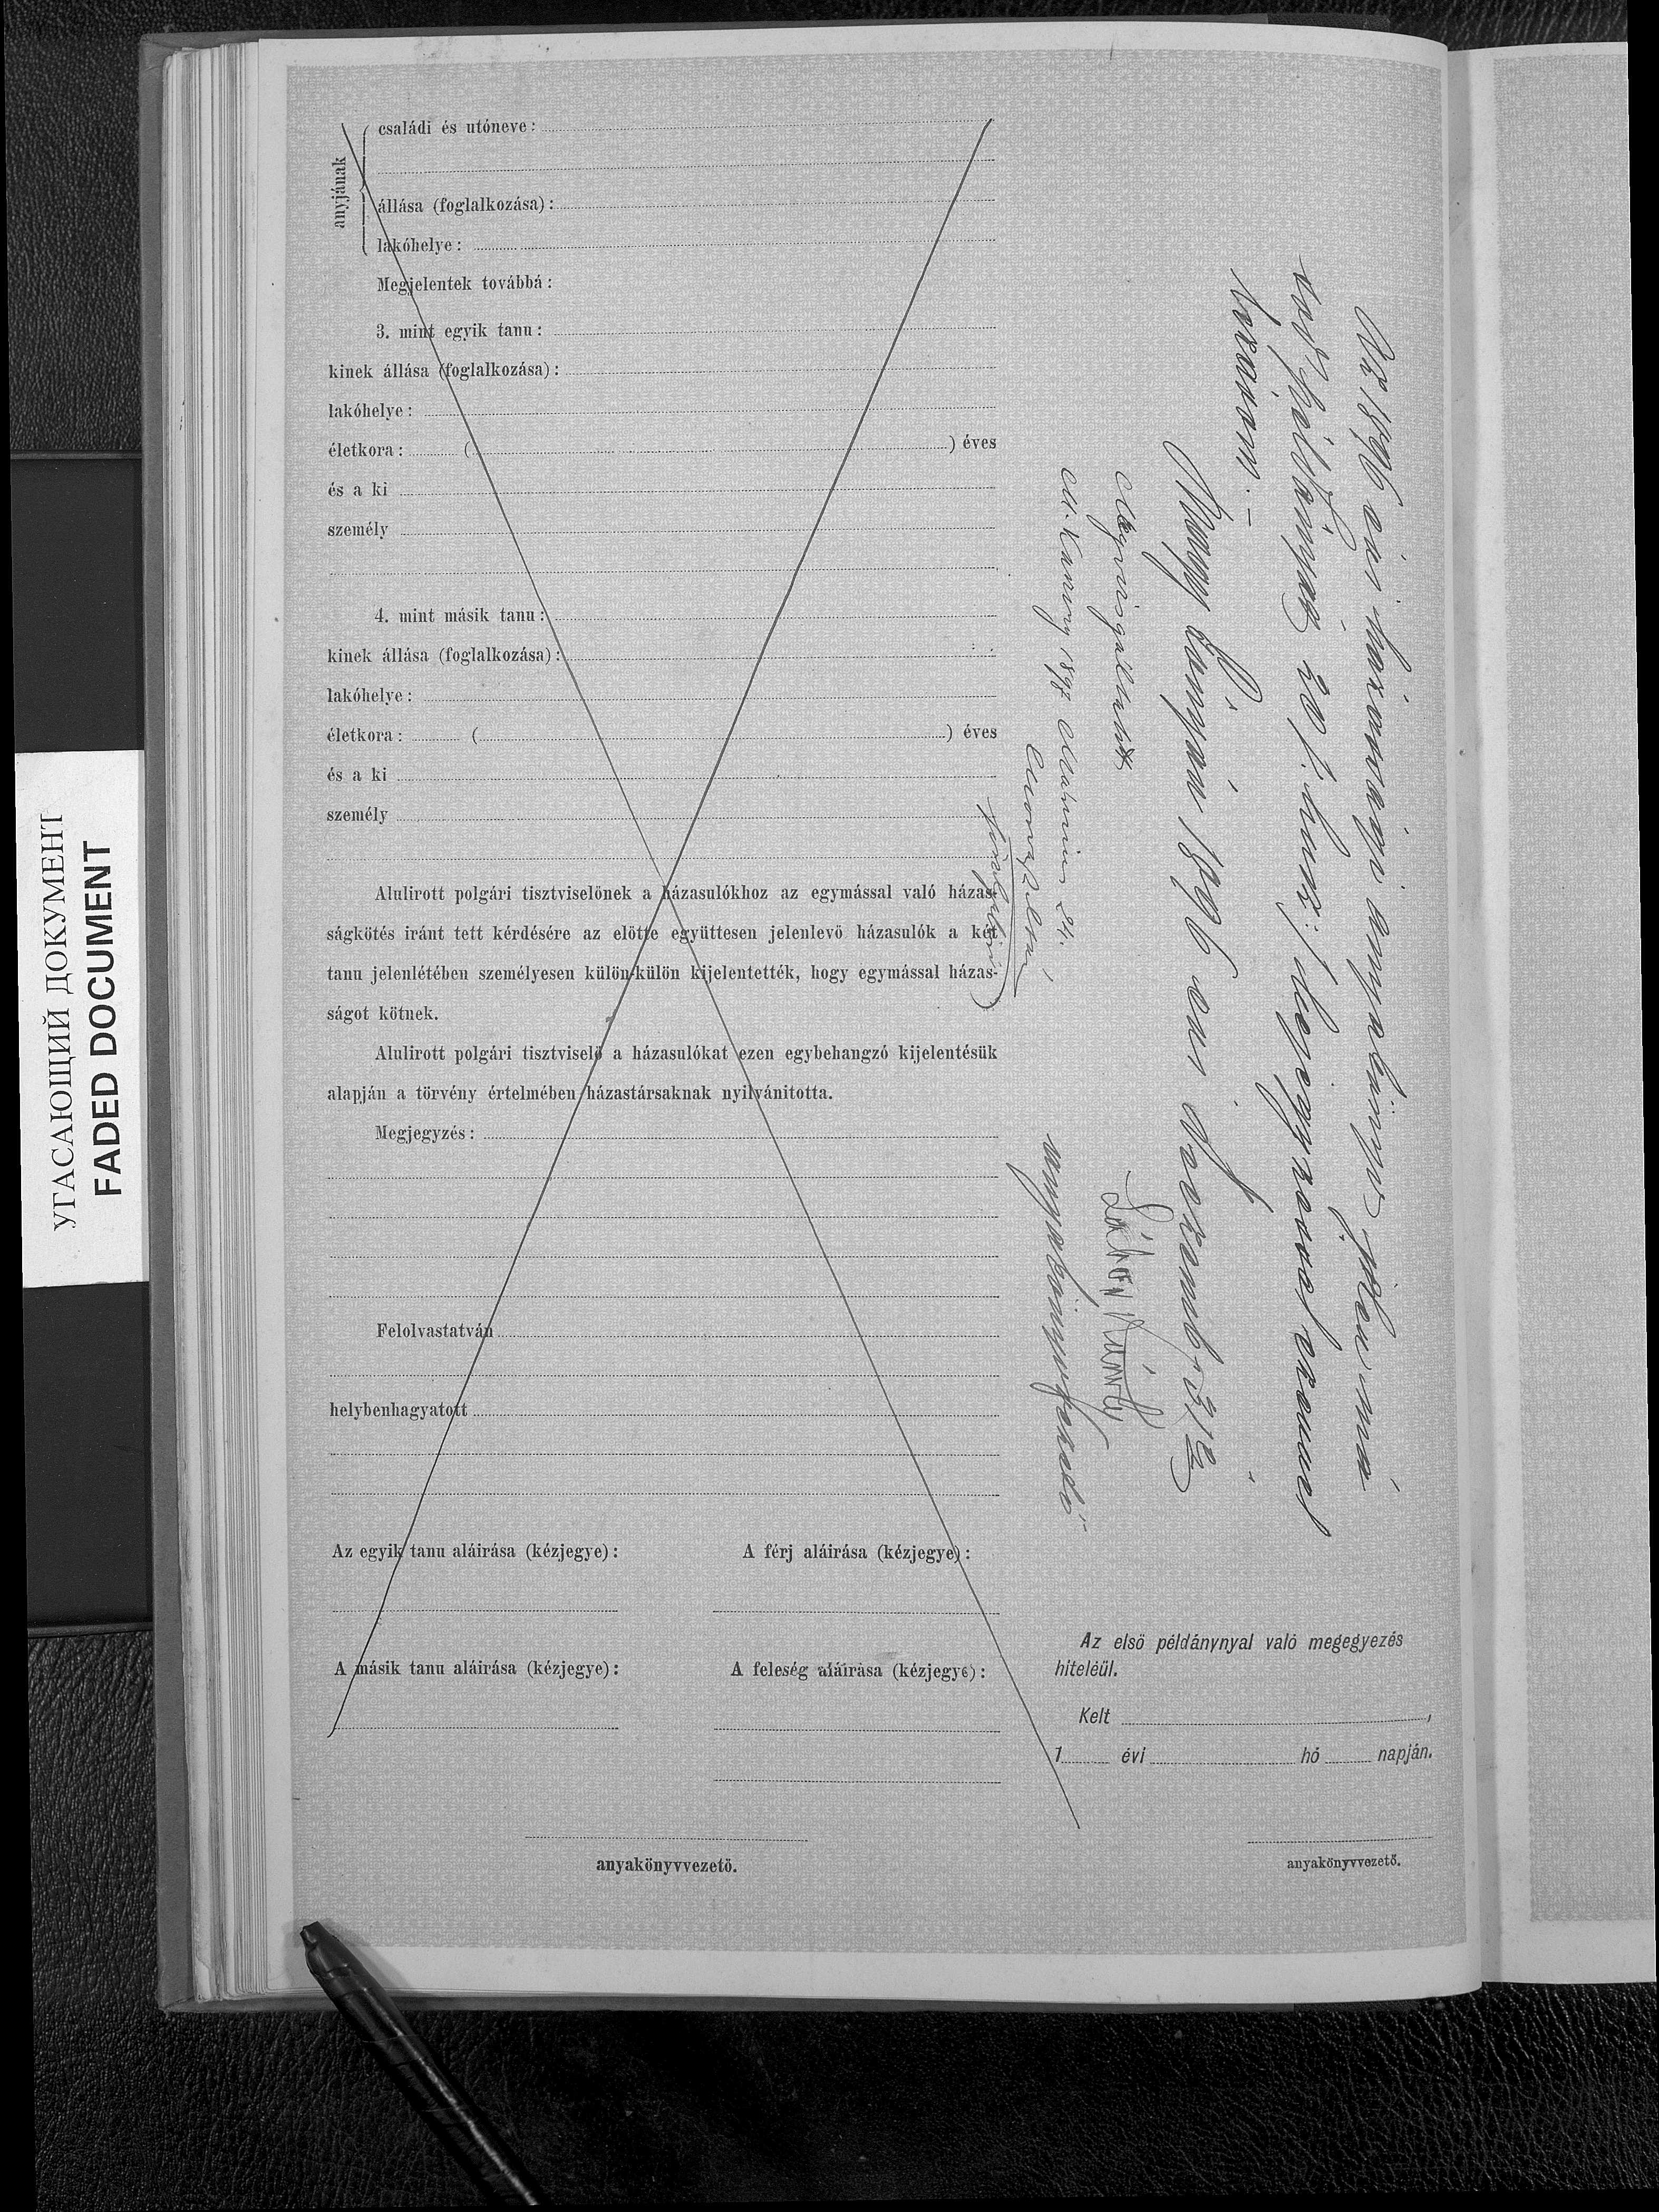 УГАСАЮЩИЙ ДОКУМЕНТ
FADED DOCUMENT
anyjának
családi és utóneve:
állása (foglalkozása):
lakóhelye:
Megjelentek továbbá:
3. mint egyik tanu:
kinek állása (foglalkozása):
lakóhelye:
életkora: ( ) éves
és a ki
személy
4. mint másik tanu:
kinek állása (foglalkozása):
lakóhelye:
életkora: ( ) éves
és a ki
személy
Alulirott polgári tisztviselönek a házasulókhoz az egymással való házas-
ságkötés iránt tett kérdésére az elötte együttesen jelenlevö házasulók a két
tanu jelenlétében személyesen külön-külön kijelentették, hogy egymással házas-
ságot kötnek.
Alulirott polgári tisztviselö a házasulókat ezen egybehangzó kijelentésük
alapján a törvény értelmében házastársaknak nyilvánitotta.
Megjegyzés:
Felolvastatván
helybenhagyatott
Az egyik tanu aláirása (kézjegye):
A férj aláirása (kézjegye):
A másik tanu aláirása (kézjegye):
A feleség aláirása (kézjegye):
anyakönyvvezetö.
Az 1896 évi házassági anyakönyv jelen má
sod példányát 20 /:husz:/ bejegyzéssel ezennel
lezárom. –
1896 évi deczemb. 31én
Károly
anyakönyvvezető
Megvizsgáltatott
1897 Március 24.
Az elsö példánynyal való megegyezés
hiteléül.
Kelt ,
1 évi hó napján.
anyakönyvvezetö.